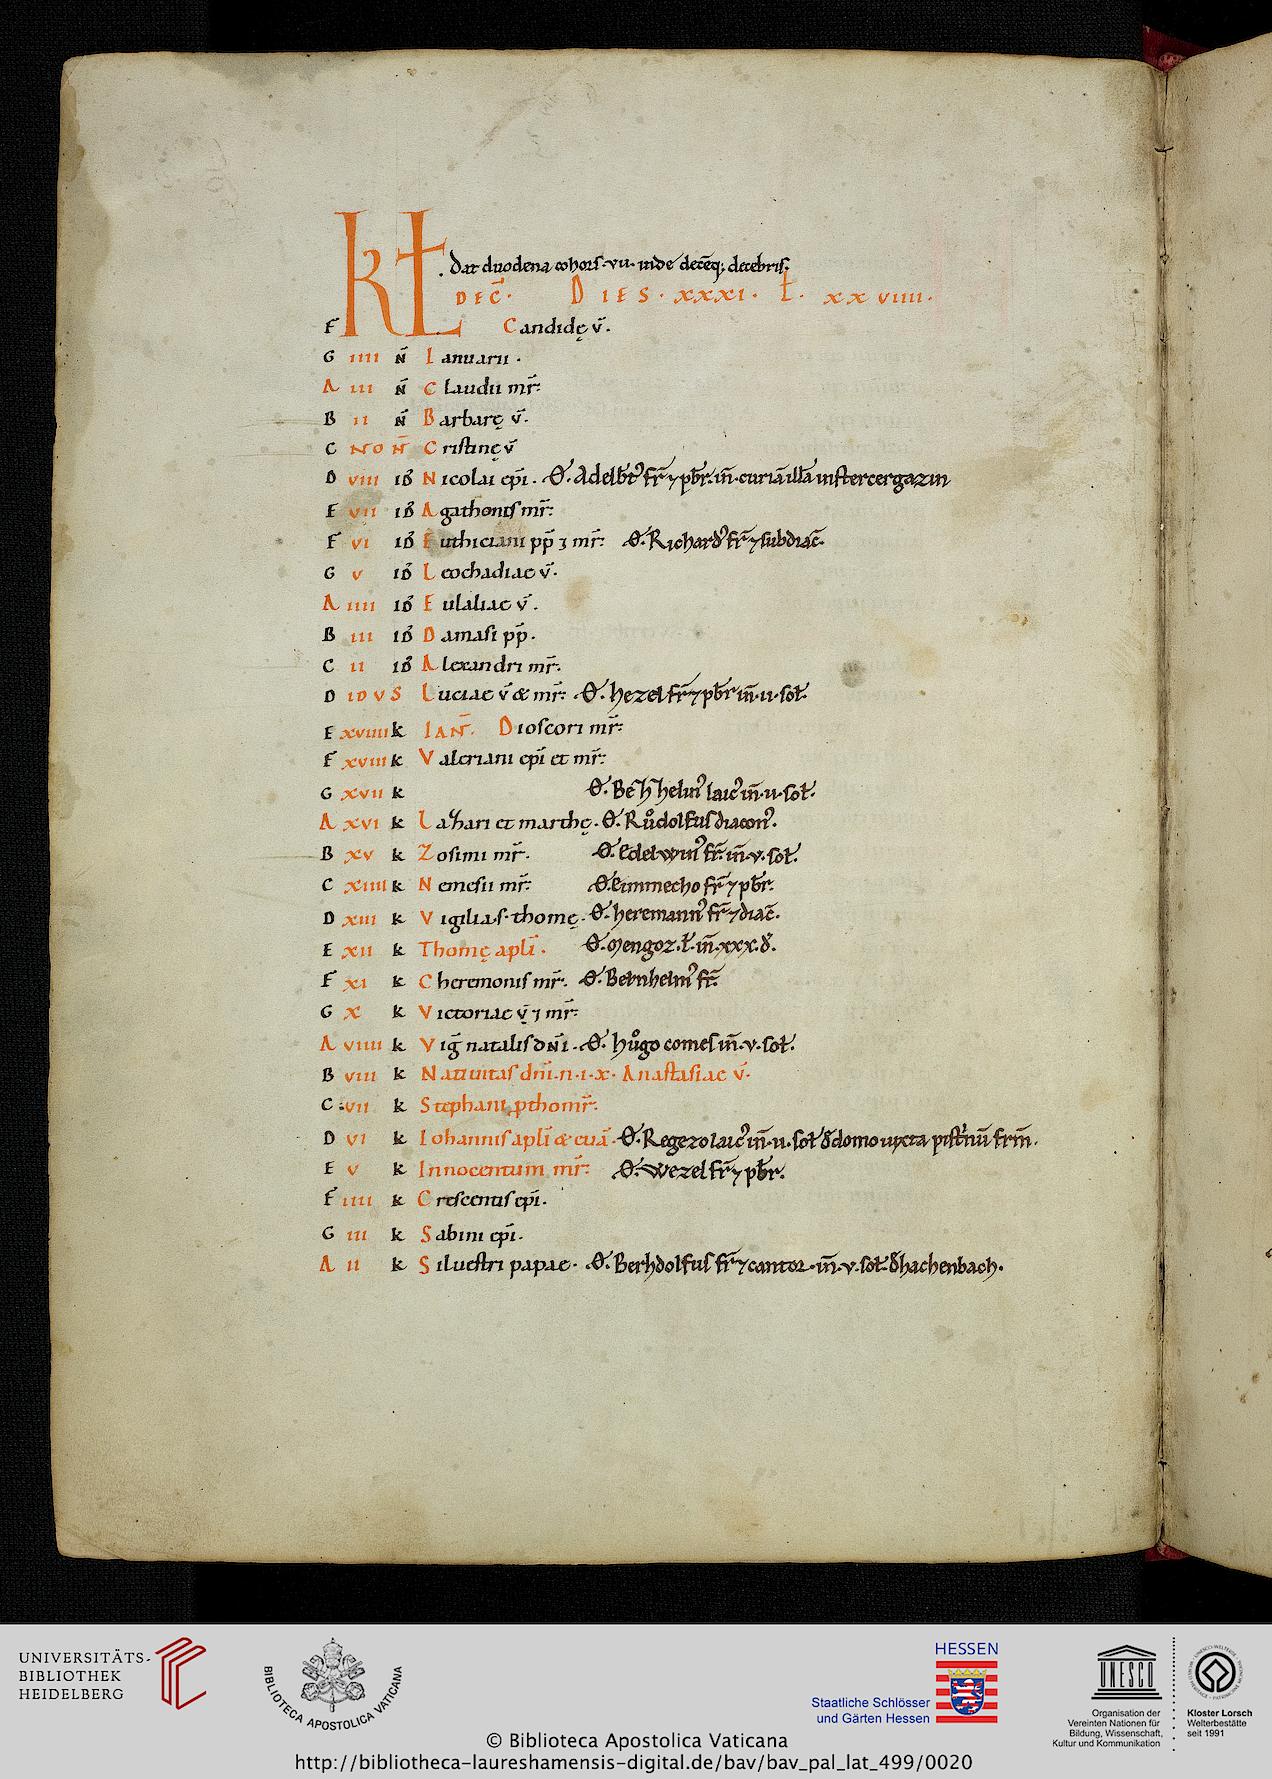 KL
. Dat duodena cohors .vii. inde decēq; decēbris.
DEC̄. DIES. xxxi. L. xxviiii.
F Candidę v̄.
G iiii N̄ Ianuarii .
A iii N̄ Claudii mr̄.
B ii N̄ Barbarę v̄.
C NON̄ Cristinę v̄
D viii id Nicolai ep̄i. Ꝋ. Adelb̄t' fr̄ ⁊ pb̄r. in̄ curiā illā inſtercergazin
E vii id Agathonis mr̄.
F vi id Euthiciani pp̄ ⁊ mr̄. Ꝋ. Richard' fr̄ ⁊ subdiac̄.
G v id Leochadiae v̄.
A iiii id Eulaliae v̄.
B iii id Damasi pp̄.
C ii id Alexandri mr̄.
D IDVS Luciae v̄ & mr̄. Ꝋ. hezel fr̄ ⁊ pb̄r in̄ .ii. sol̄.
E xviiii k IAN̄. Dioscori mr̄.
F xviii k Valeriani ep̄i et mr̄.
G xvii k Ꝋ. helm' laic' in̄ .ii. sol̄.
A xvi k Lazari et marthę. Ꝋ. Růdolfus diacon'.
B xv k Zosimi mr̄. Ꝋ. Edelwin' fr̄. in̄ .v. sol̄.
C xiiii k Nemesii mr̄. Ꝋ. Eimmecho fr̄ ⁊ pb̄r.
D xiii k Vigilia .S. thomę. Ꝋ. heremann' fr̄ ⁊ diac̄.
E xii k Thomę apl̄i. Ꝋ. Mengoz. l̄. in̄ .xxx. đ.
F xi k Cheremonis mr̄. Ꝋ. Bernhelm' fr̄.
G x k Victoriae v̄ ⁊ mr̄.
A viiii k Vig̅ natalis dn̄i. Ꝋ. hůgo comes in̄ .v. sol̄.
B viii k Natiuitas dn̄i .n.i.x. Anastasiae v̄.
C vii k Stephani pthomr̄.
D vi k Iohannis apl̄i & euā. Ꝋ. Regezo laic' in̄ .ii. sol̄ đ domo iuxta pist'nū frm̄.
E v k Innocentum mr̄. Ꝋ. Wezel fr̄ ⁊ pb̄r.
F iiii k Crescentis ep̄i.
G iii k Sabini ep̄i.
A ii k Siluestri papae. Ꝋ. Berhdolfus fr̄ ⁊ cantor. in̄ .v. sol̄. đ hachenbach.
UNIVERSITÄTS-
BIBLIOTHEK
HEIDELBERG
BIBLIOTECA APOSTOLICA VATICANA
HESSEN
Staatliche Schlösser
und Gärten Hessen
UNESCO
Organisation der
Vereinten Nationen für
Bildung, Wissenschaft,
Kultur und Kommunikation
Kloster Lorsch
Welterbestätte
seit 1991
© Biblioteca Apostolica Vaticana
http://bibliotheca-laureshamensis-digital.de/bav/bav_pal_lat_499/0020